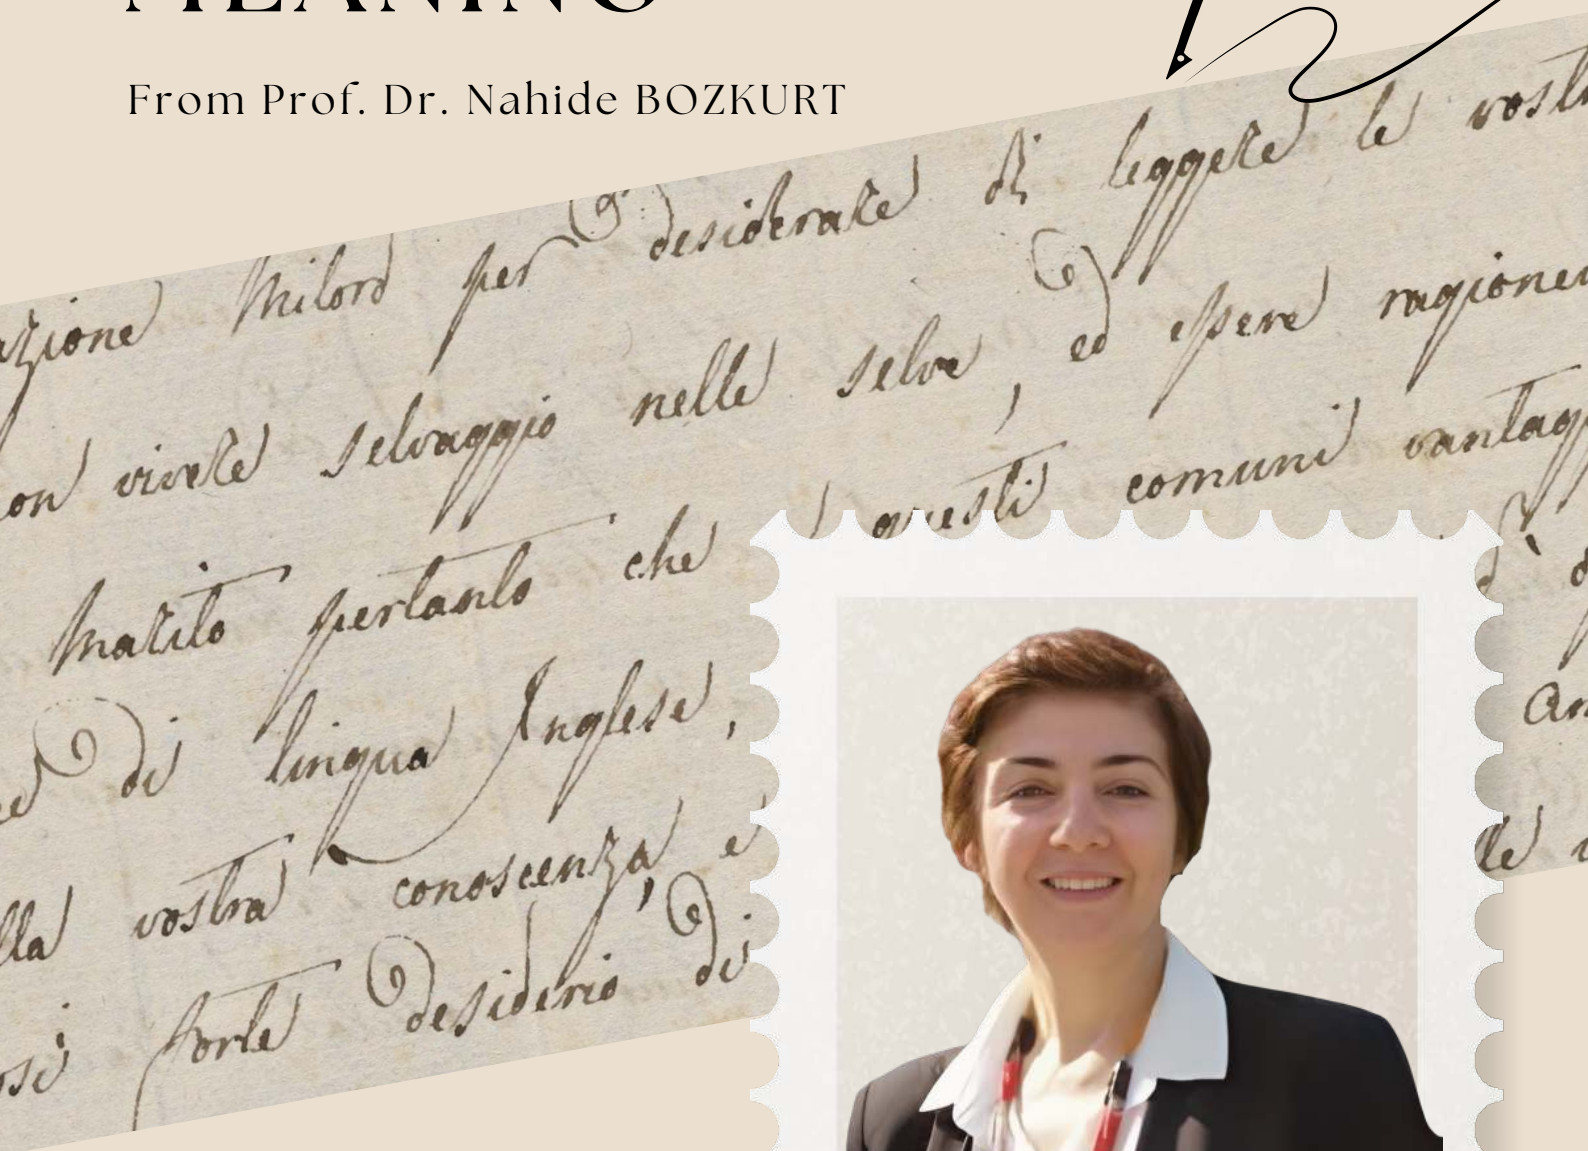 MEANING
From Prof. Dr. Nahide BOZKURT
azione Milord per desiderare di leggere le vostr
on vivere selvaggio nelle selve, ed essere ragione
Marito pertanto che questi comuni vantagg
di lingua Inglese, An
lla vostra conoscenza, e lle
osi forte desiderio di